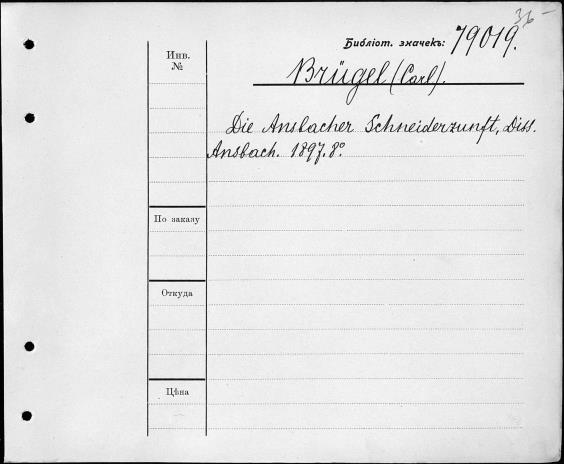 36 –
Библіот. значекъ: 79019.
Инв.
№
Brügel (Carl).
Die Ansbacher Schneiderzunft, Diss.
Ansbach. 1897. 8º
По заказу
Откуда
Цѣна